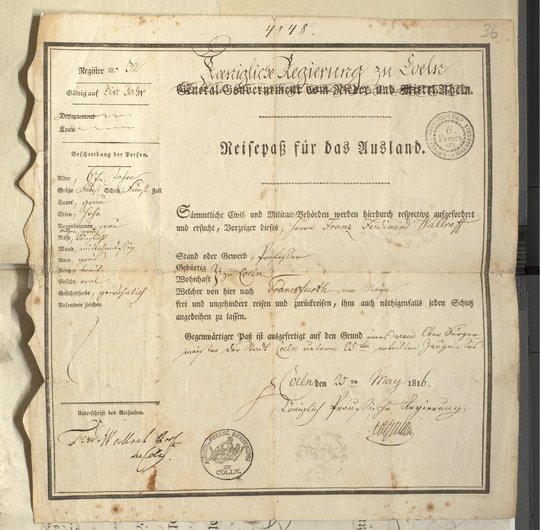 4148.
36
Register no 32
Gültig auf Ein Jahr
Departement
Kreis
Beschreibung der Person.
Alter, 67 Jahre
Größe Fünf Schuh Fünf Zoll
Haare, grau
Stirn, hohe
Augenbraunen, grau
Nase,
Mund,
Bart, grau
Kinn,
Gesicht, oval
Gesichtsfarbe, gewöhnlich
Besondere Zeichen
Unterschrift des Reisenden.
Ferd. Wallraf
Kœnigliche Regierung zu Coeln
General-Gouvernement vom Nieder- und Mittel-Rhein.
6.
Francs
Reisepaß für das Ausland.
Sämmtliche Civil- und Militair-Behörden werden hierdurch respective aufgefordert
und ersucht, Vorzeiger dieses, Herrn Franz Ferdinand Wallraff
Stand oder Gewerb, Professor
Gebürtig
Wohnhaft zu Coeln
Welcher von hier nach Franckfurth am Mayn
frei und ungehindert reisen und zurückreisen, ihm auch nöthigenfalls jeden Schutz
angedeihen zu lassen.
Gegenwärtiger Paß ist ausgefertigt auf den Grund eines vom Ober Bürger
meister der Stadt Coeln unterm 25ten ertheilten Zeugnisses
Coeln den 25 ten May 1816.
Königlich Preussische Regierung.
KÖNIGL. PREUSS. REGIERUNG
ZU
CÖLLN.